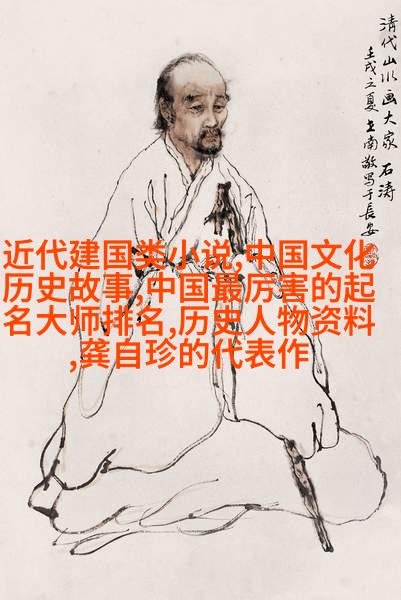 清代山水画大家 石涛
壬戌之夏 南敬写于長安
近代建国类小说,中国文化
历史故事,中国最厉害的起
名大师排名,历史人物资料
,龚自珍的代表作